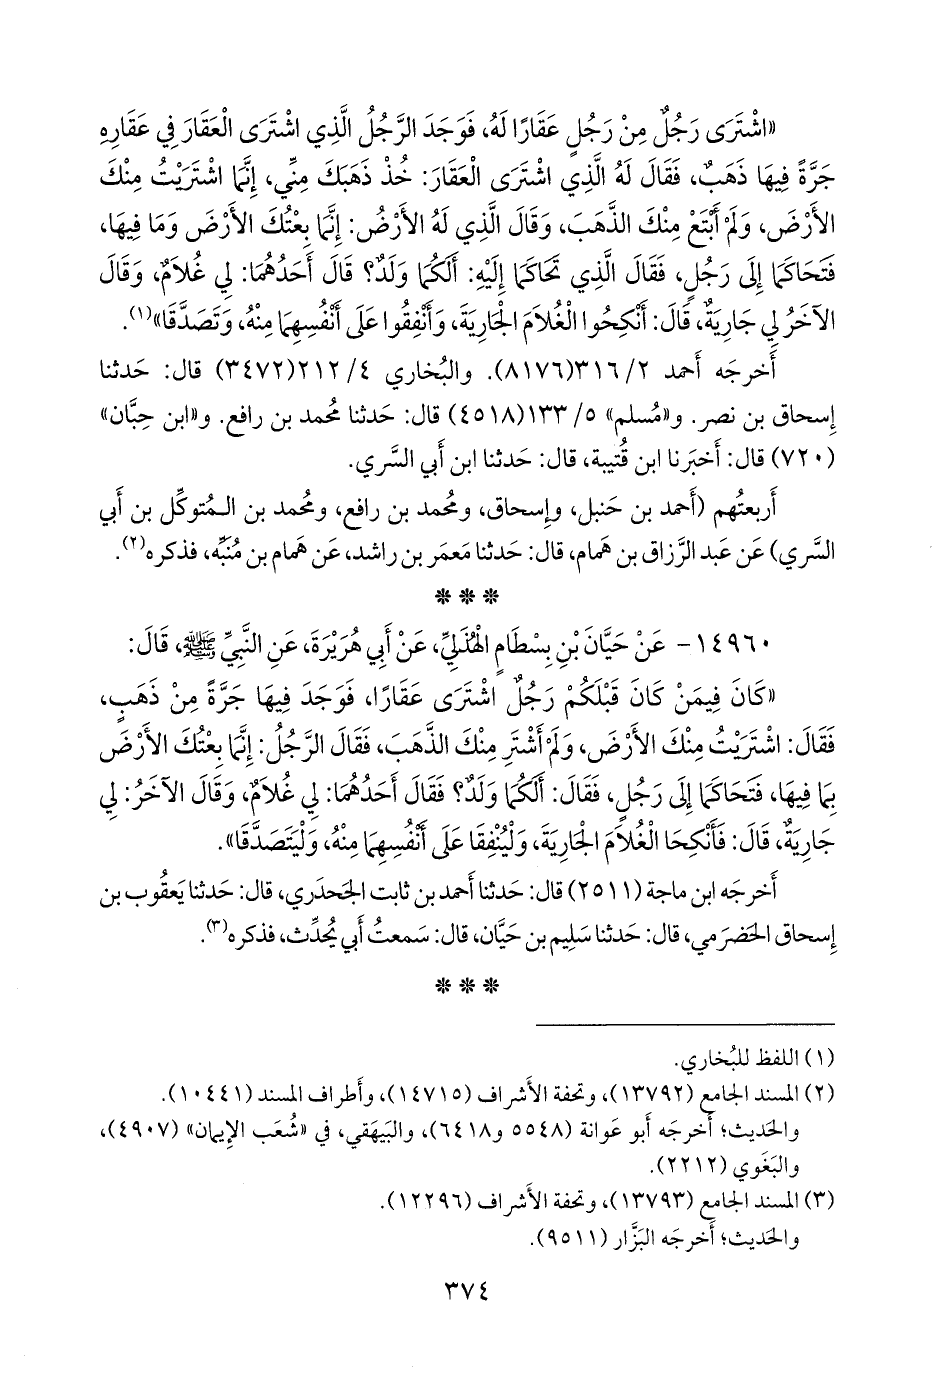 «اشْتَرَى رَجُلٌ مِنْ رَجُلٍ عَقَارًا لَهُ، فَوَجَدَ الرَّجُلُ الَّذِي اشْتَرَى الْعَقَارَ فِي عَقَارِهِ
جَرَّةً فِيهَا ذَهَبٌ، فَقَالَ لَهُ الَّذِي اشْتَرَى الْعَقَارَ: خُذْ ذَهَبَكَ مِنِّي، إِنَّمَا اشْتَرَيْتُ مِنْكَ
الأَرْضَ، وَلَمْ أَبْتَعْ مِنْكَ الذَّهَبَ، وَقَالَ الَّذِي لَهُ الأَرْضُ: إِنَّمَا بِعْتُكَ الأَرْضَ وَمَا فِيهَا،
فَتَحَاكَمَا إِلَى رَجُلٍ، فَقَالَ الَّذِي تَحَاكَمَا إِلَيْهِ: أَلَكُمَا وَلَدٌ؟ قَالَ أَحَدُهُمَا: لِي غُلَامٌ، وَقَالَ
الآخَرُ لِي جَارِيَةٌ، قَالَ: أَنْكِحُوا الْغُلَامَ الْجَارِيَةَ، وَأَنْفِقُوا عَلَى أَنْفُسِهِمَا مِنْهُ، وَتَصَدَّقَا»(١).
أَخرجَه أَحمد ٢/ ٣١٦(٨١٧٦). والبُخاري ٤/ ٢١٢(٣٤٧٢) قال: حَدثنا
إِسحاق بن نصر. و«مُسلم» ٥/ ١٣٣(٤٥١٨) قال: حَدثنا مُحمد بن رافع. و«ابن حِبَّان»
(٧٢٠) قال: أَخبَرنا ابن قُتيبة، قال: حَدثنا ابن أَبي السَّري.
أَربعتُهم (أَحمد بن حَنبل، وإِسحاق، ومُحمد بن رافع، ومُحمد بن المُتوكِّل بن أَبي
السَّري) عَن عَبد الرَّزاق بن هَمام، قال: حَدثنا مَعمَر بن راشد، عَن هَمام بن مُنَبِّه، فذكره(٢).
* * *
١٤٩٦٠- عَنْ حَيَّانَ بْنِ بِسْطَامٍ الْهُذَلِيِّ، عَنْ أَبِي هُرَيْرَةَ، عَنِ النَّبِيِّ ﷺ، قَالَ:
«كَانَ فِيمَنْ كَانَ قَبْلَكُمْ رَجُلٌ اشْتَرَى عَقَارًا، فَوَجَدَ فِيهَا جَرَّةً مِنْ ذَهَبٍ،
فَقَالَ: اشْتَرَيْتُ مِنْكَ الأَرْضَ، وَلَمْ أَشْتَرِ مِنْكَ الذَّهَبَ، فَقَالَ الرَّجُلُ: إِنَّمَا بِعْتُكَ الأَرْضَ
بِمَا فِيهَا، فَتَحَاكَمَا إِلَى رَجُلٍ، فَقَالَ: أَلَكُمَا وَلَدٌ؟ فَقَالَ أَحَدُهُمَا: لِي غُلَامٌ، وَقَالَ الآخَرُ: لِي
جَارِيَةٌ، قَالَ: فَأَنْكِحَا الْغُلَامَ الْجَارِيَةَ، وَلْيُنْفِقَا عَلَى أَنْفُسِهِمَا مِنْهُ، وَلْيَتَصَدَّقَا».
أَخرجَه ابن ماجة (٢٥١١) قال: حَدثنا أَحمد بن ثابت الجَحدَري، قال: حَدثنا يَعقُوب بن
إِسحاق الحَضرَمي، قال: حَدثنا سَلِيم بن حَيَّان، قال: سَمعتُ أَبي يُحدِّث، فذكره(٣).
* * *
(١) اللفظ للبُخاري.
(٢) المسند الجامع (١٣٧٩٢)، وتحفة الأَشراف (١٤٧١٥)، وأَطراف المسند (١٠٤٤١).
والحَديث؛ أَخرجَه أَبو عَوانة (٥٥٤٨ و٦٤١٨)، والبَيهَقي، في «شُعَب الإِيمان» (٤٩٠٧)،
والبَغَوي (٢٢١٢).
(٣) المسند الجامع (١٣٧٩٣)، وتحفة الأَشراف (١٢٢٩٦).
والحَديث؛ أَخرجَه البَزَّار (٩٥١١).
٣٧٤